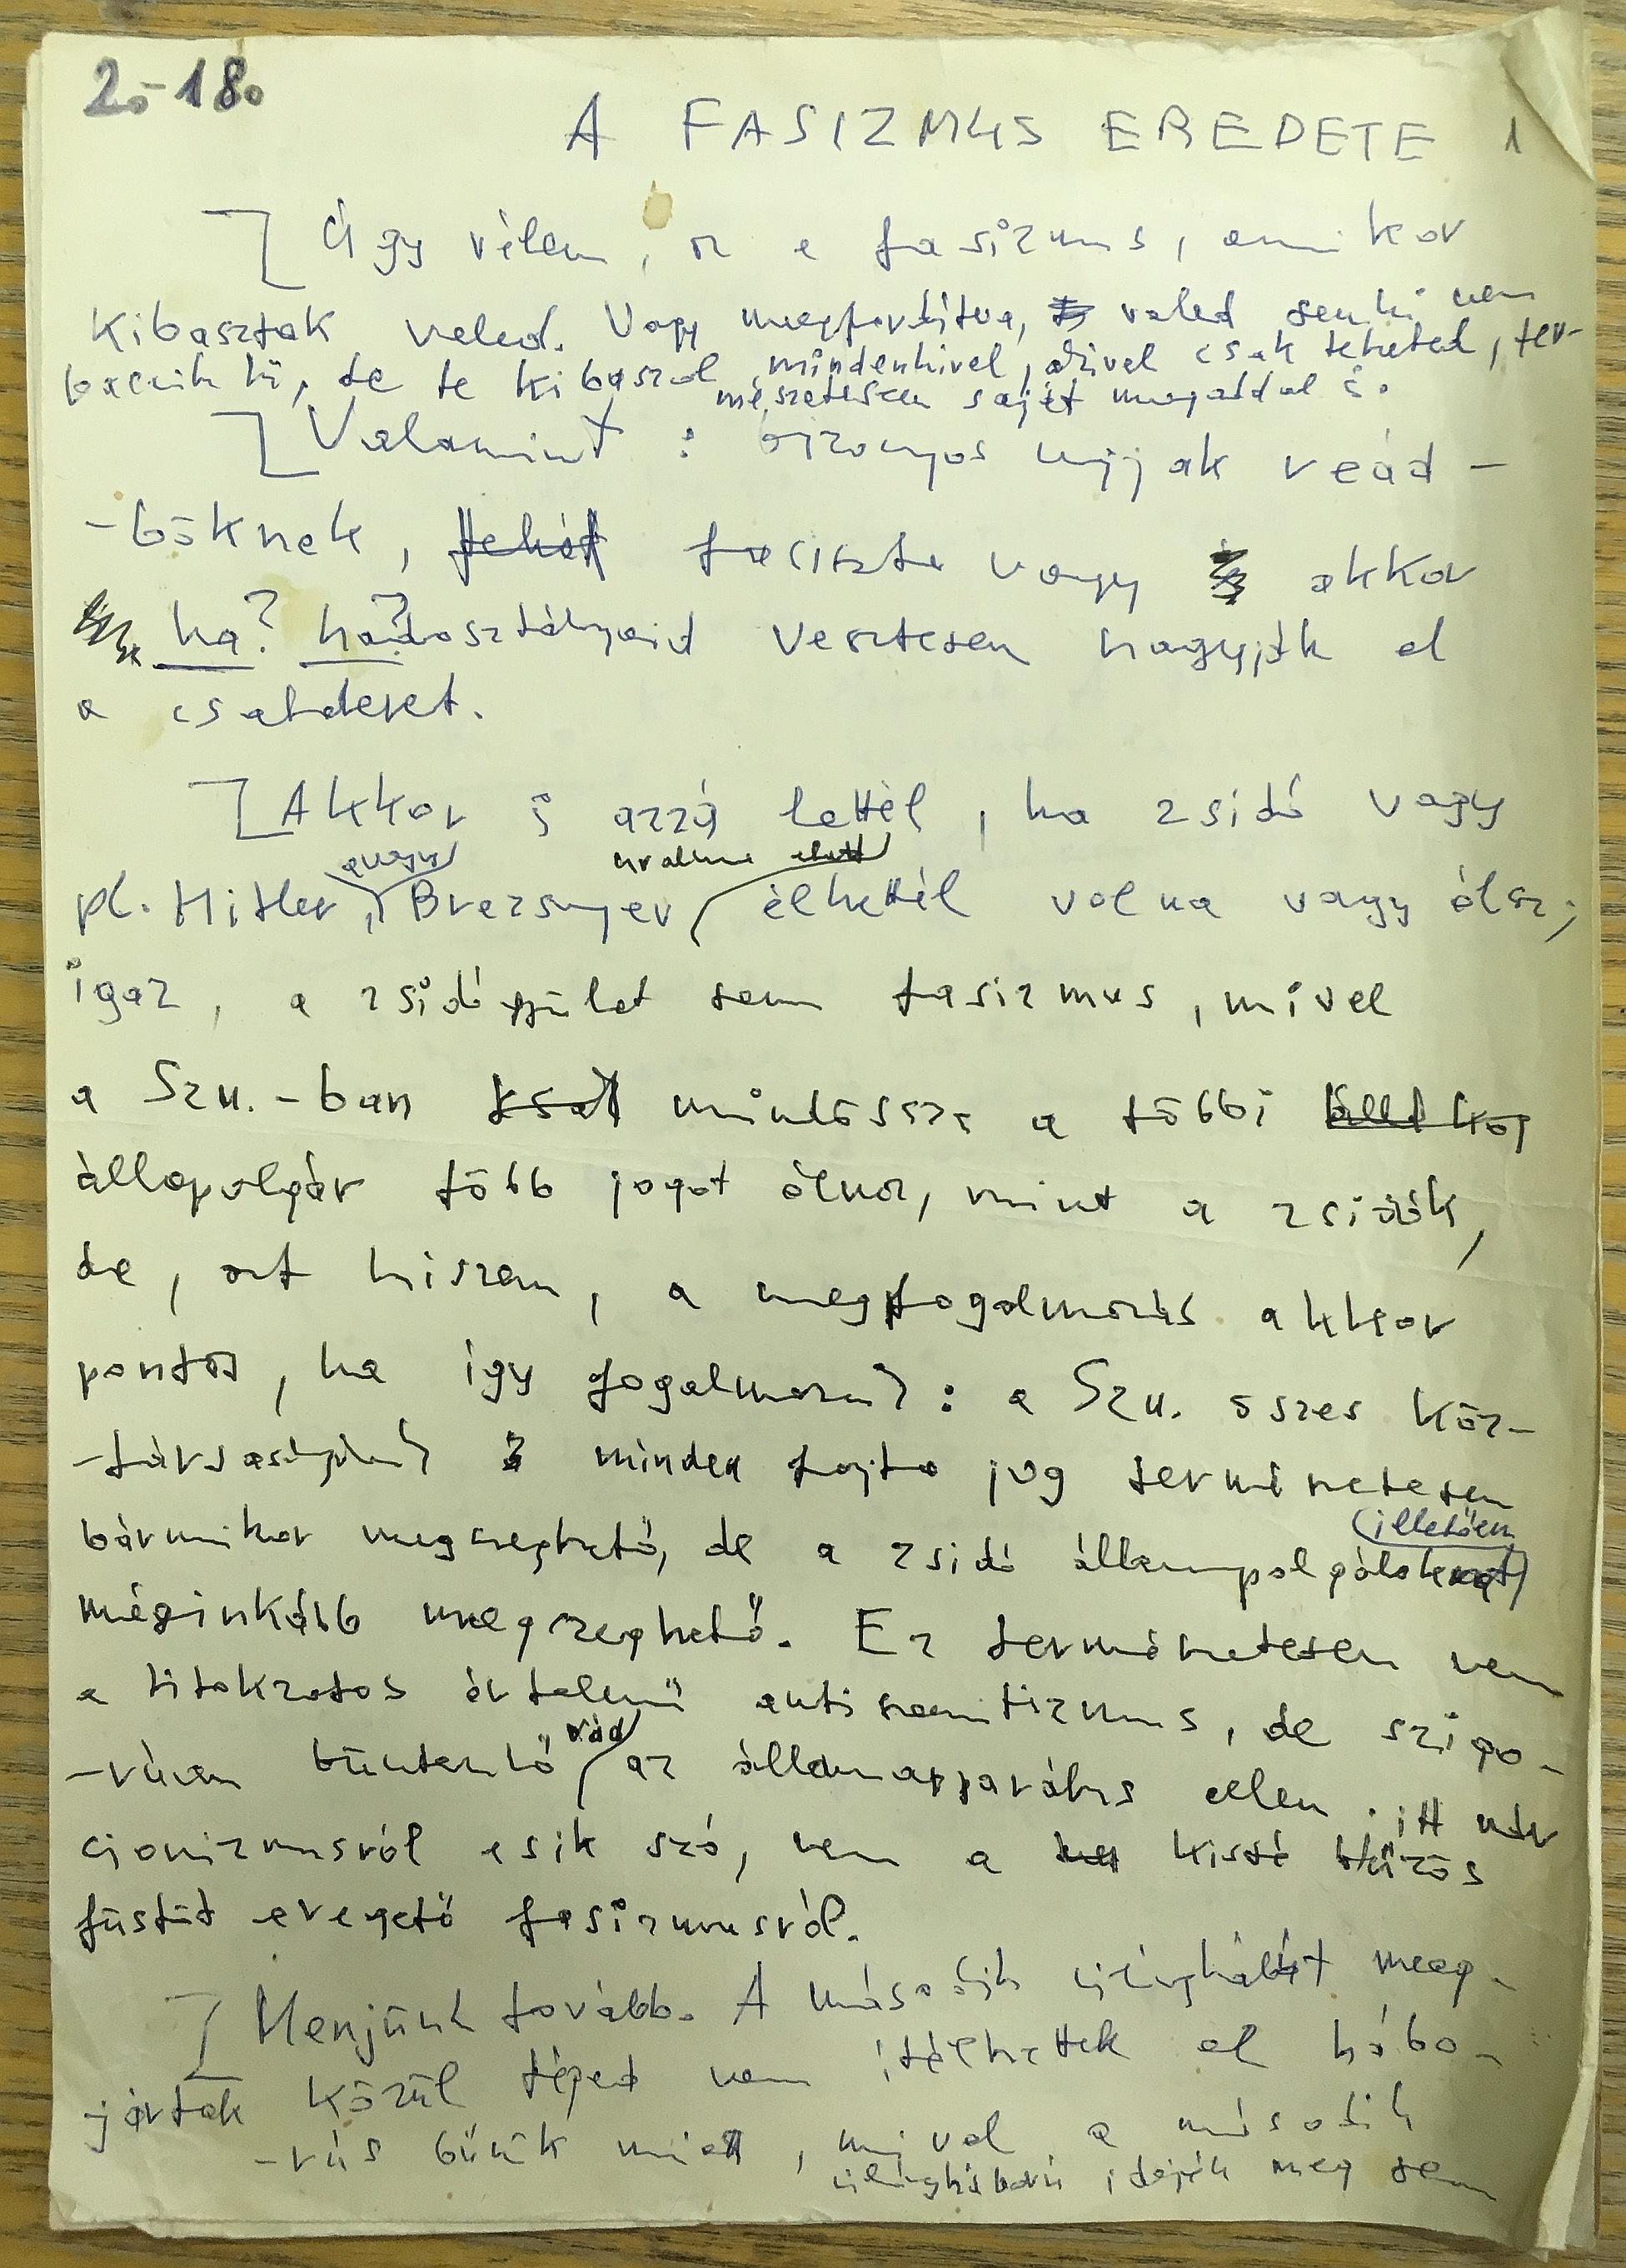 2.-18.
A FASIZMUS EREDETE 1
Úgy vélem, az a fasizmus, amikor
kibasztak veled. Vagy megfordítva, veled senki nem
baszik ki, de te kibaszol mindenkivel, akivel csak teheted, ter-
mészetesen saját magaddal is.
Valamint: bizonyos ujjak reád-
-böknek, tehát fasiszta vagy akkor
ha? hadosztályaid vesztesen hagyják el
a csatateret.
Akkor is azzá lettél, ha zsidó vagy
pl. Hitler, avagy Brezsnyev uralma alatt élhettél volna vagy élsz;
igaz, a zsidógyűlölet sem fasizmus, mivel
a Szu.-ban csak mindössze a többi
állapolgár több jogot élvez, mint a zsidók,
de, azt hiszem, a megfogalmazás akkor
pontos, ha így fogalmazunk: a Szu. összes köz-
-társaságában minden fajta jog természetesen
bármikor megszeghető, de a zsidó állampolgárokat illetően
méginkább megszeghető. Ez természetesen nem
a titokzatos értelmű antiszemitizmus, de szigo-
-rúan büntetendő vád az államapparátus ellen. itt már
cionizmusról esik szó, nem a kissé bűzös
füstöt eregető fasizmusról.
Menjünk tovább. A második világhábút meg-
jártak közül téged nem ítélhettek el hábo-
-rús bűnök miatt, mivel a második
világháború idején meg sem